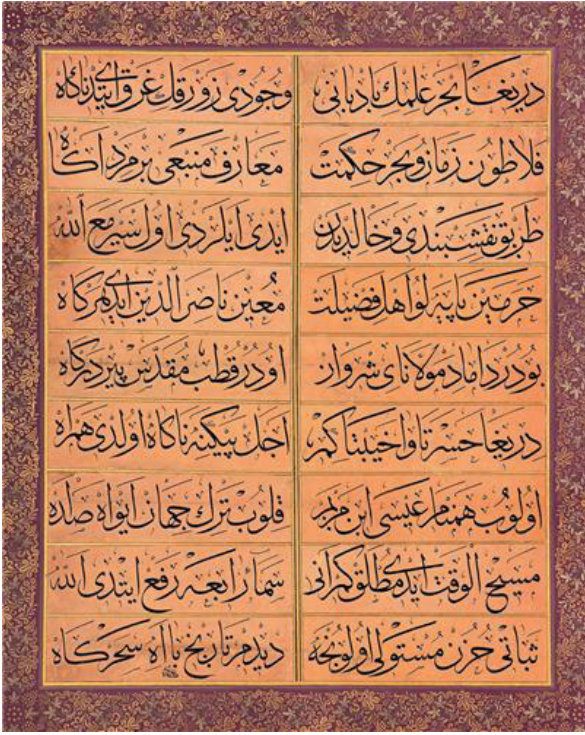 دريغا بحر علمك بادبانى وجودى زورقك غرق ايتدى ناكاه
فلاطون زمان و بحر حكمت معارف منبعى بر مرد آكاه
طريق نقشبندى و خالديدن ايدى ايلردى اول سير مع الله
حرمين پايه لو اهل فضيلت معين ناصر الدين ايدى هركاه
بودر داماد مولاناى شروان اودر قطب مقدس پير دركاه
دريغا حسرتا واخيبتا كم اجل پيكينه ناكاه اولدى همراه
اولوب همنام عيسى ابن مريم قلوب ترك جهان ايواه صد اه
مسيح الوقت ايدى مطلق كم انى سماء رابعه رفع ايتدى الله
ثباتى حزن مستولى اولونجه ديدم تاريخ با اه سحركاه